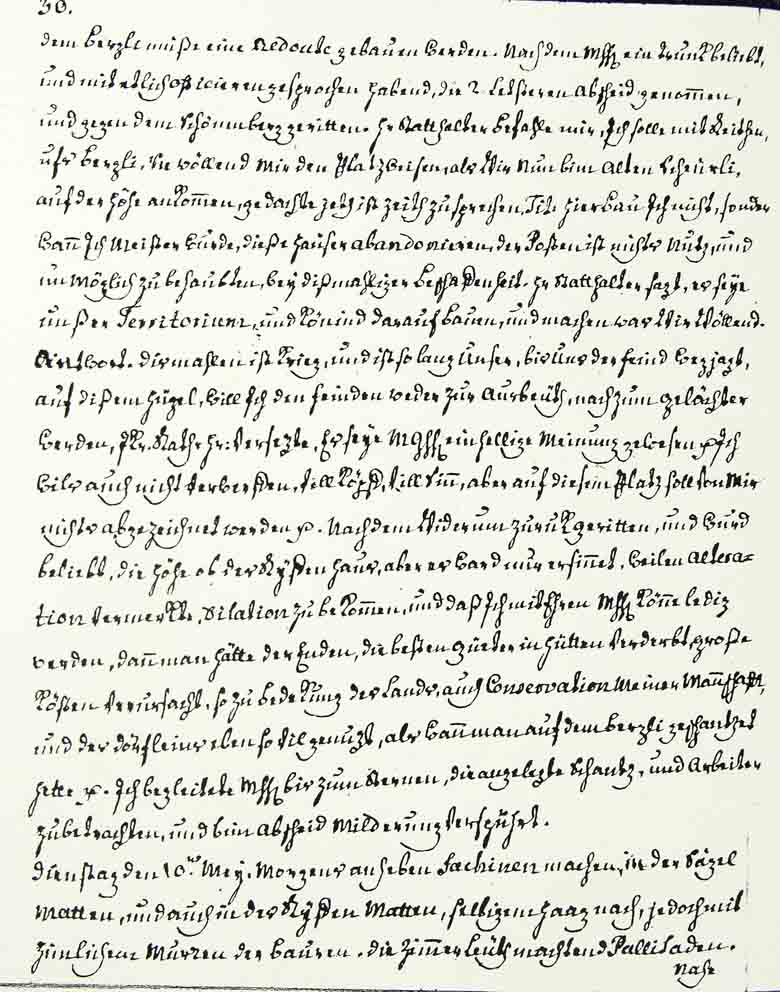 30.
dem berzli müße eine Redoute gebauen werden. Nach dem MHH ein trunk beliebt,
und mit etlich officieren gesprochen habend, die 2 letsteren Abscheid genommen,
und gegen dem Schönenberg geritten. Hr Statthalter befahle mir, Ich solle mit Reithen,
ufs berzli, Sie wöllend mir den Platz weisen, als Wir Nun bim Alten Scheürli,
auf der Höhe ankommen, gedachte jetz ist zeith zu sprechen, Tit: hier bau Ich nicht, sonder
wann Ich Meister wurde, dieße Häuser abandonieren, der Posten ist nichts Nutz, und
unmöglich zu behaubten, bey dißmahliger beschaffenheit. Hr Statthalter sagt, es seye
unßer Territorium, und könind darauf bauen, und machen was Wir Wöllend.
Antwort. dismahlen ist Krieg, und ist so lang Unser, bis Uns der feind weg jagt,
auf dißem Hügel, will Ich den feinden weder zur Ausbeüth, nach zum gelächter
werden, Hr. Rathshr: Versezte, Es seye MGHH einhellige Meinung gewesen p Ich
wils auch nicht Verwerffen, Vill Köpff, Vill Sinn, aber auf diesem Platz soll Von Mir
nichts abgezeichnet werden p. Nach dem Widerum zuruk geritten, und wurd
beliebt, die Höhe ob des Ryffen Haus, aber es ward nur ersinnet, weilen Altera=
tion Vermerkte, Dilation zu bekommen, und daß Ich mit Ehren MHH könne ledig
werden, dann man hätte der Enden, die besten güeter in Hütten Verderbt, große
Kösten Verursacht, so zu bedekung des Lands, auch Conservation Meiner Mannschafft,
und des dörfleins eben so Vil genuzt, als wann man auf dem berzli geschantzet
hette p. Ich begleitete MHH bis zum Sternen, die angelegte Schantz, und Arbeiter
zu betrachten, und bim Abscheid Milderung Verspührt.
Dienstag den 10ten Mey. Morgens anheben Fachinen machen, in der Sägel
Matten, und auch in des Ryffen Matten, selbigem Haag nach, jedoch mit
zimlichem Murren der Bauren. die Zimmerleüth machtend Pallisaden.
Nahe